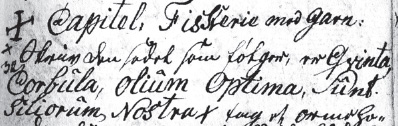 Capitel, Fiskerie med Garn:
Skriv den sedel som følger, er Qvinta,
Corbula, Olium Optima, Sunt.
Siliorum, Nostra tag et orme